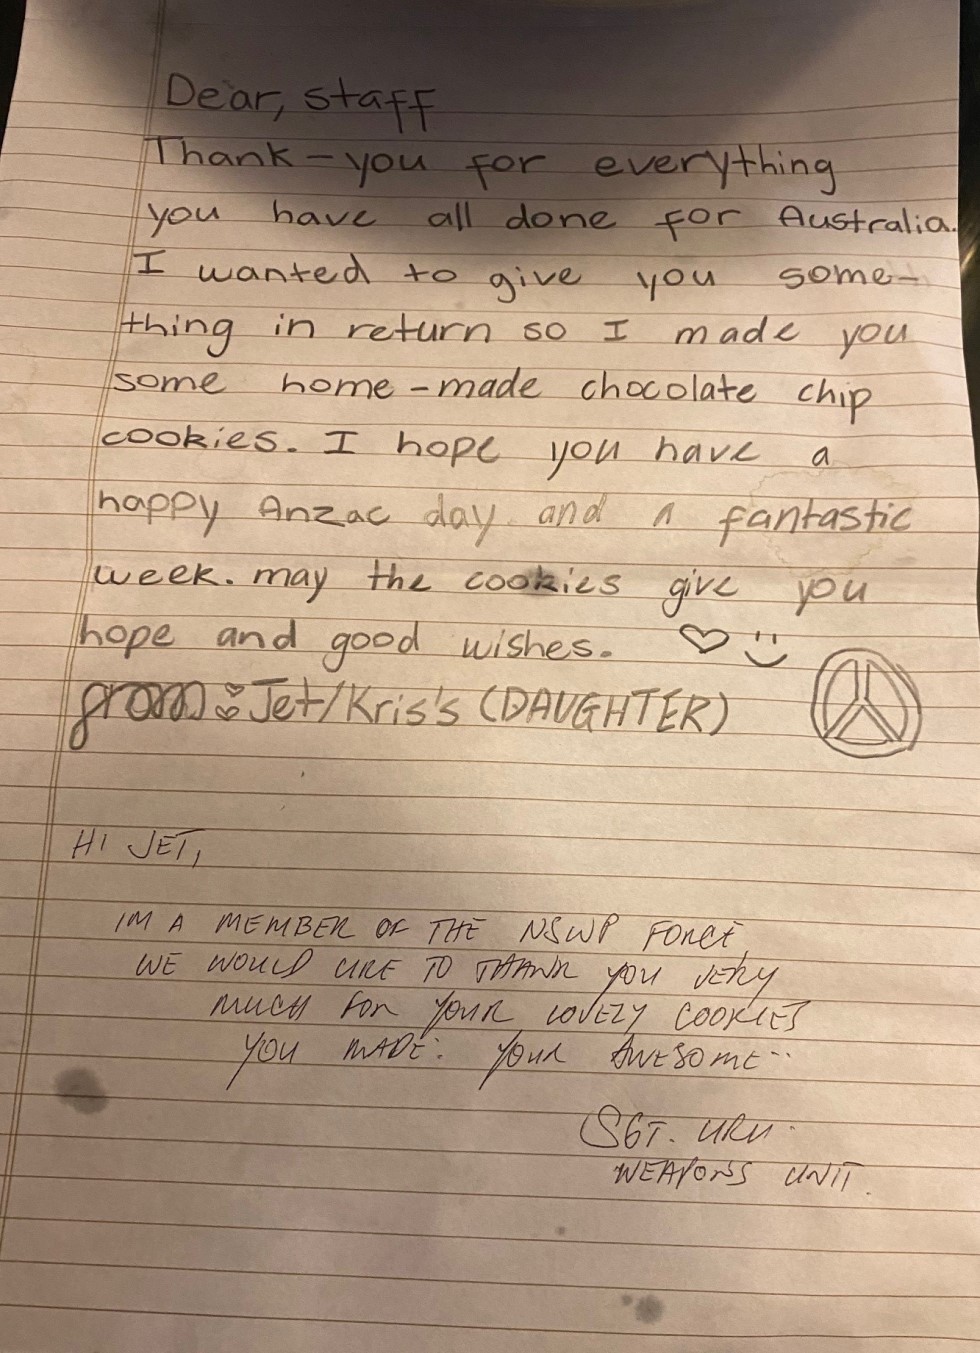 Dear, staff
Thank-you for everything
you have all done for Australia.
I wanted to give you some-
thing in return so I made you
some home-made chocolate chip
cookies. I hope you have a
happy Anzac day and a fantastic
week. may the cookies give you
hope and good wishes.
from: Jet/Kris's (DAUGHTER)
HI JET,
IM A MEMBER OF THE NSWP FORCE,
WE WOULD LIKE TO THANK YOU VERY
MUCH FOR YOUR LOVELY COOKIES
YOU MADE. YOUR AWESOME..
SGT.
WEAPONS UNIT.